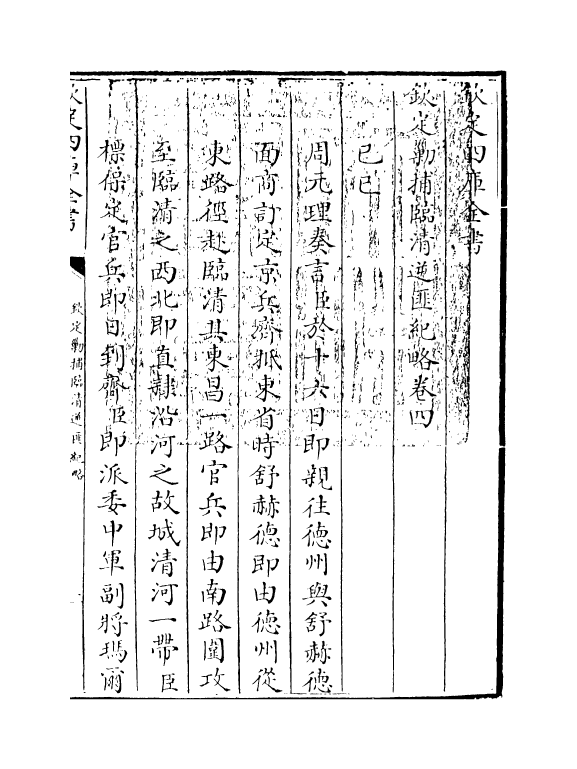 欽定四庫全書
欽定勦捕臨清逆匪紀略卷四
己巳
周元理奏言臣於十六日即親往德州與舒赫德
面商訂定京兵齊抵東省時舒赫德即由德州從
東路徑赴臨清其東昌一路官兵即由南路圍攻
至臨清之西北即直隸沿河之故城清河一帶臣
標保定官兵即日到齊臣即派委中軍副將瑪爾
欽定四庫全書
欽定勦捕臨清逆匪紀略